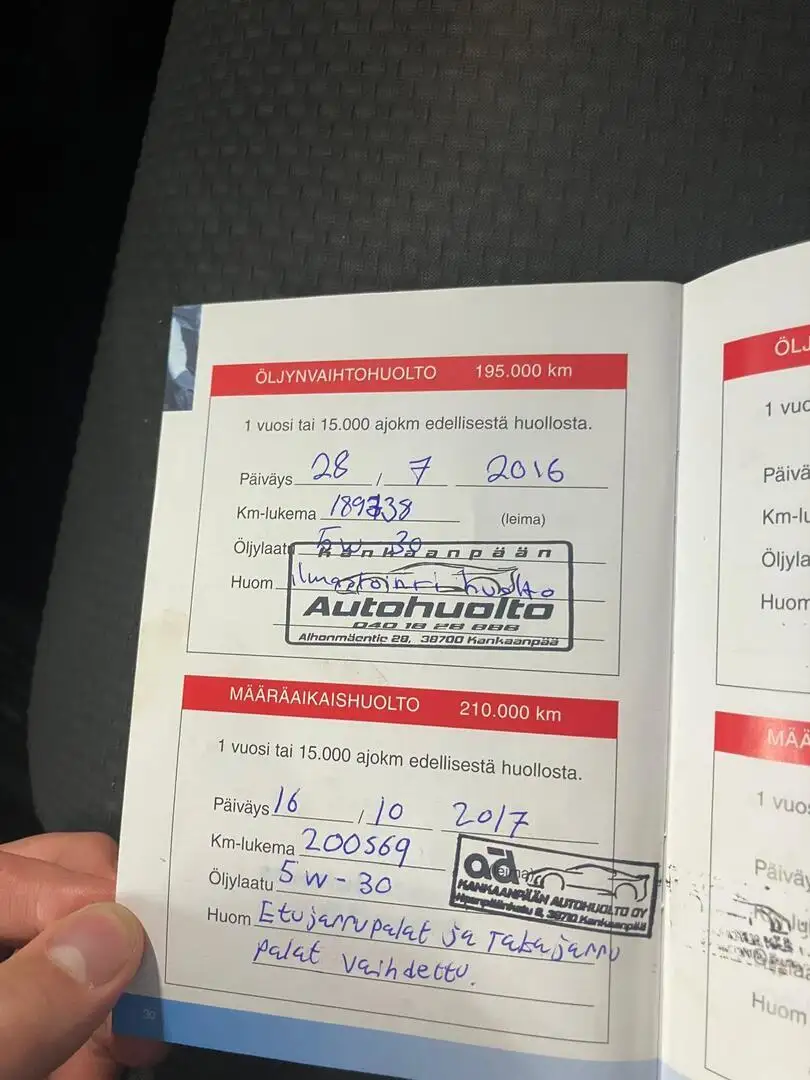 ÖLJYNVAIHTOHUOLTO 195.000 km
1 vuosi tai 15.000 ajokm edellisestä huollosta.
Päiväys 28 / 7 2016
Km-lukema 189738
(leima)
Öljylaatu 5w-30
Kankaanpään
Huom ilmastointihuolto
Autohuolto
040 18 28 888
Alhonmäentie 29, 38700 Kankaanpää
MÄÄRÄAIKAISHUOLTO 210.000 km
1 vuosi tai 15.000 ajokm edellisestä huollosta.
Päiväys 16 / 10 2017
Km-lukema 200569
ad (leima)
Öljylaatu 5W-30
KANKAANPÄÄN AUTOHUOLTO OY
38710 Kankaanpää
Huom Etujarrupalat ja Takajarru
palat vaihdettu.
30
ÖLJ
1 vuo
Päivä
Km-lu
Öljyla
Huom
MÄÄ
1 vuos
Päiväy
Huom